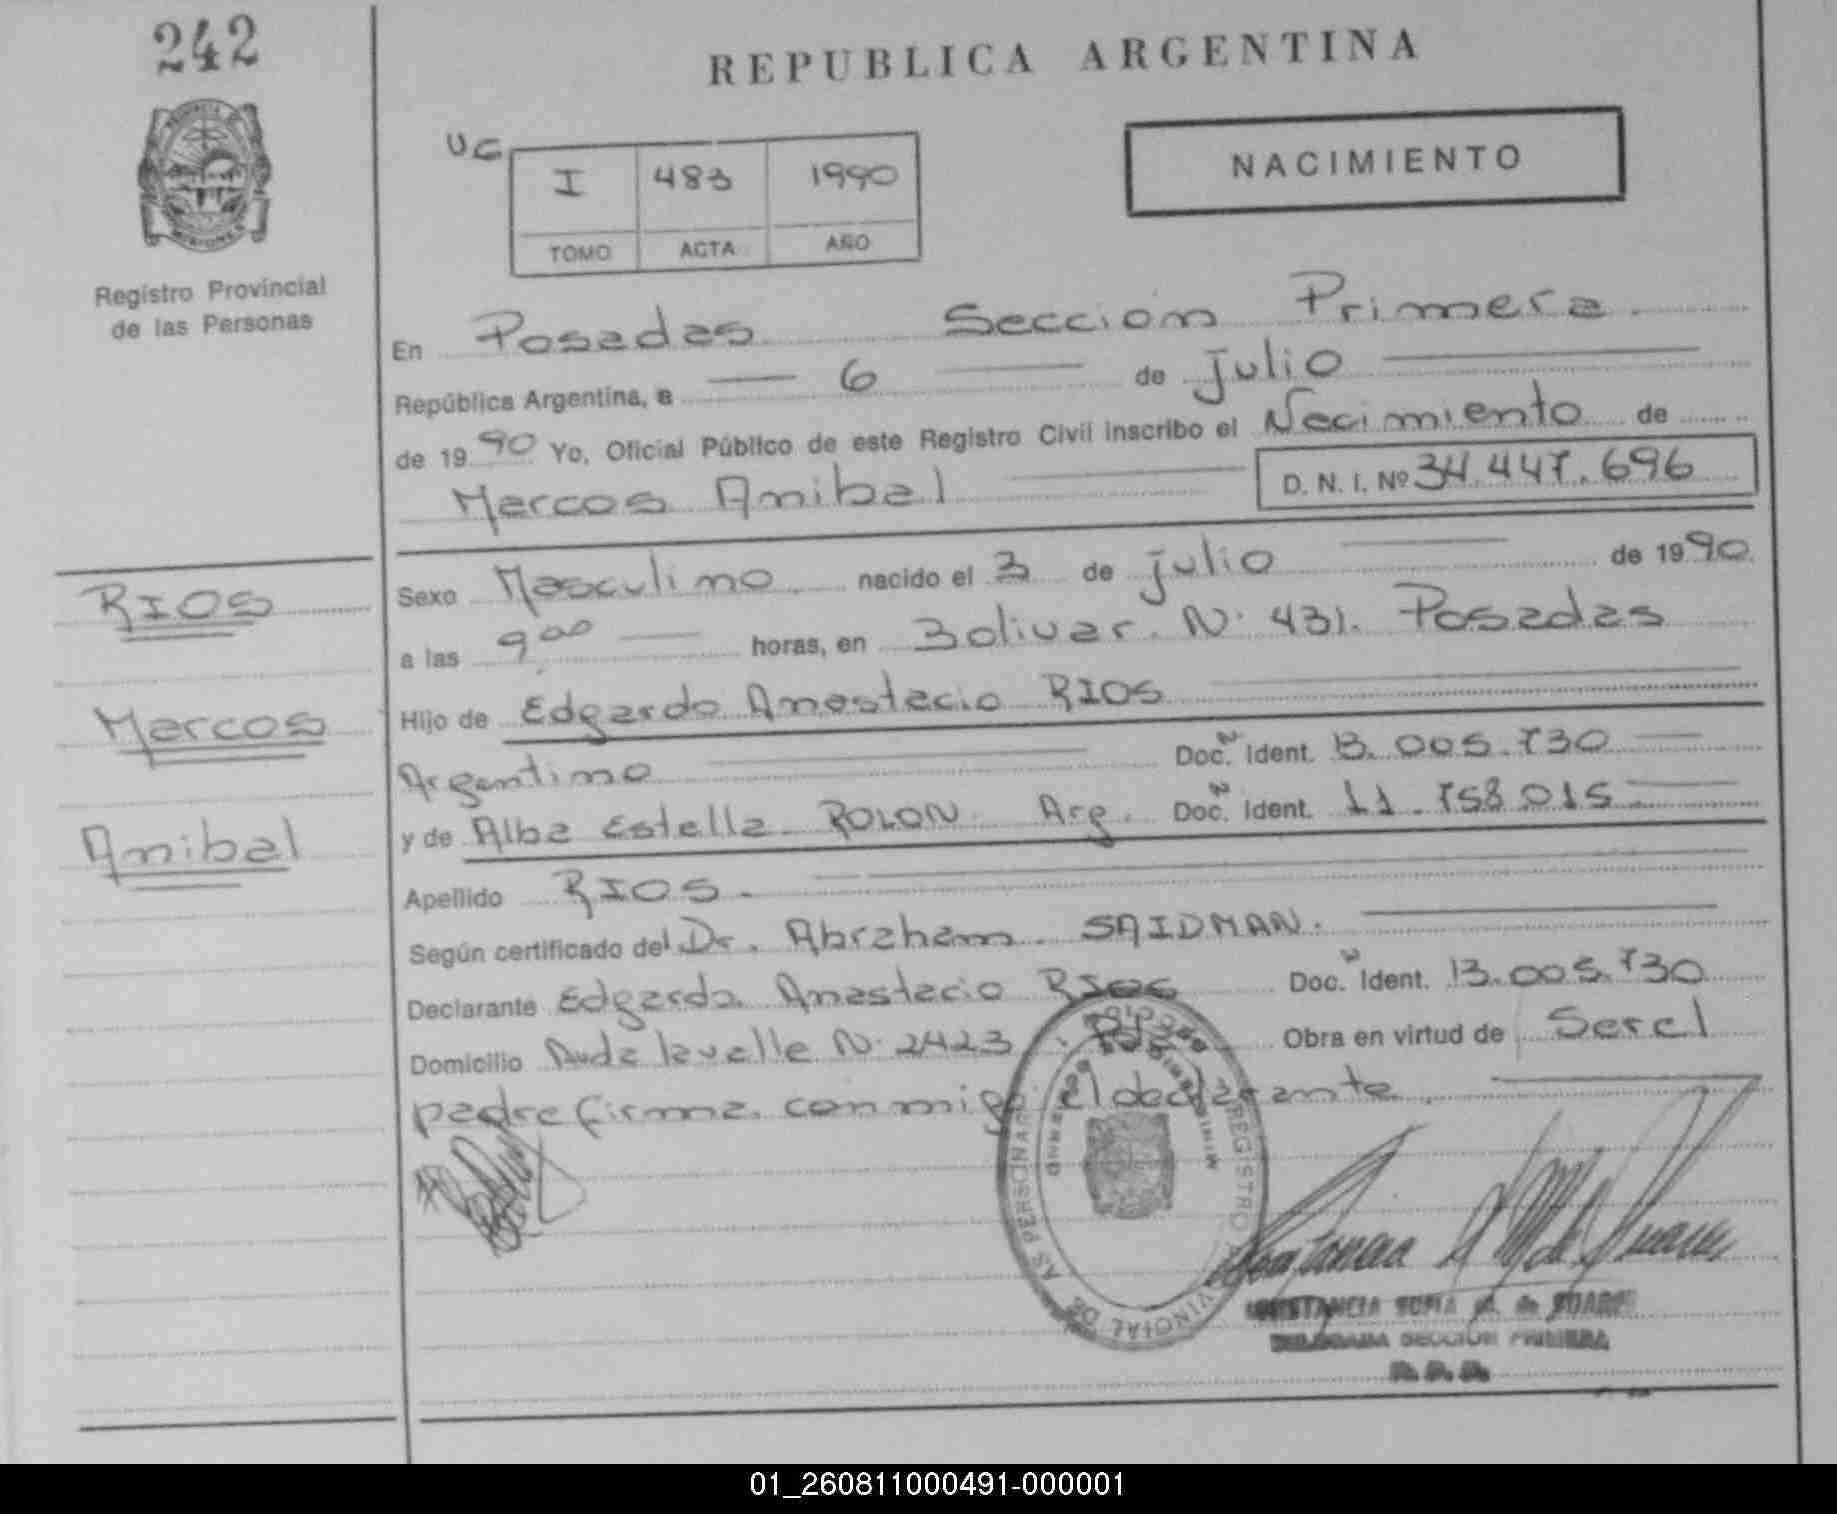 242
REPUBLICA ARGENTINA
PROVINCIA DE MISIONES
UG
I 483 1990
TOMO ACTA AÑO
NACIMIENTO
Registro Provincial
de las Personas
En Posadas Sección Primera.
República Argentina, a 6 de julio
de 1990 Yo, Oficial Público de este Registro Civil inscribo el Nacimiento de
Marcos Anibal D. N. I. Nº 34.447.696
RIOS
Marcos
Anibal
Sexo Masculino. nacido el 3 de julio de 1990.
a las 9 00 horas, en Bolivar. N. 431. Posadas
Hijo de Edgardo Anastacio RIOS
Argentino Doc. N Ident. 13.005.730
y de Alba Estella ROLON. Arg. Doc. N Ident. 11.758.015.
Apellido RIOS.
Según certificado del Dr. Abraham. SAIDMAN.
Declarante Edgardo. Anastacio RIOS Doc. N Ident. 13.005.730
Domicilio Avda lavalle N. 2423. Obra en virtud de Ser el
padre firma. conmigo el declarante.
REGISTRO PROVINCIAL DE LAS PERSONAS
CONSTANCIA SOFIA M. de SUAREZ
DELEGADA SECCION PRIMERA
01_260811000491-000001